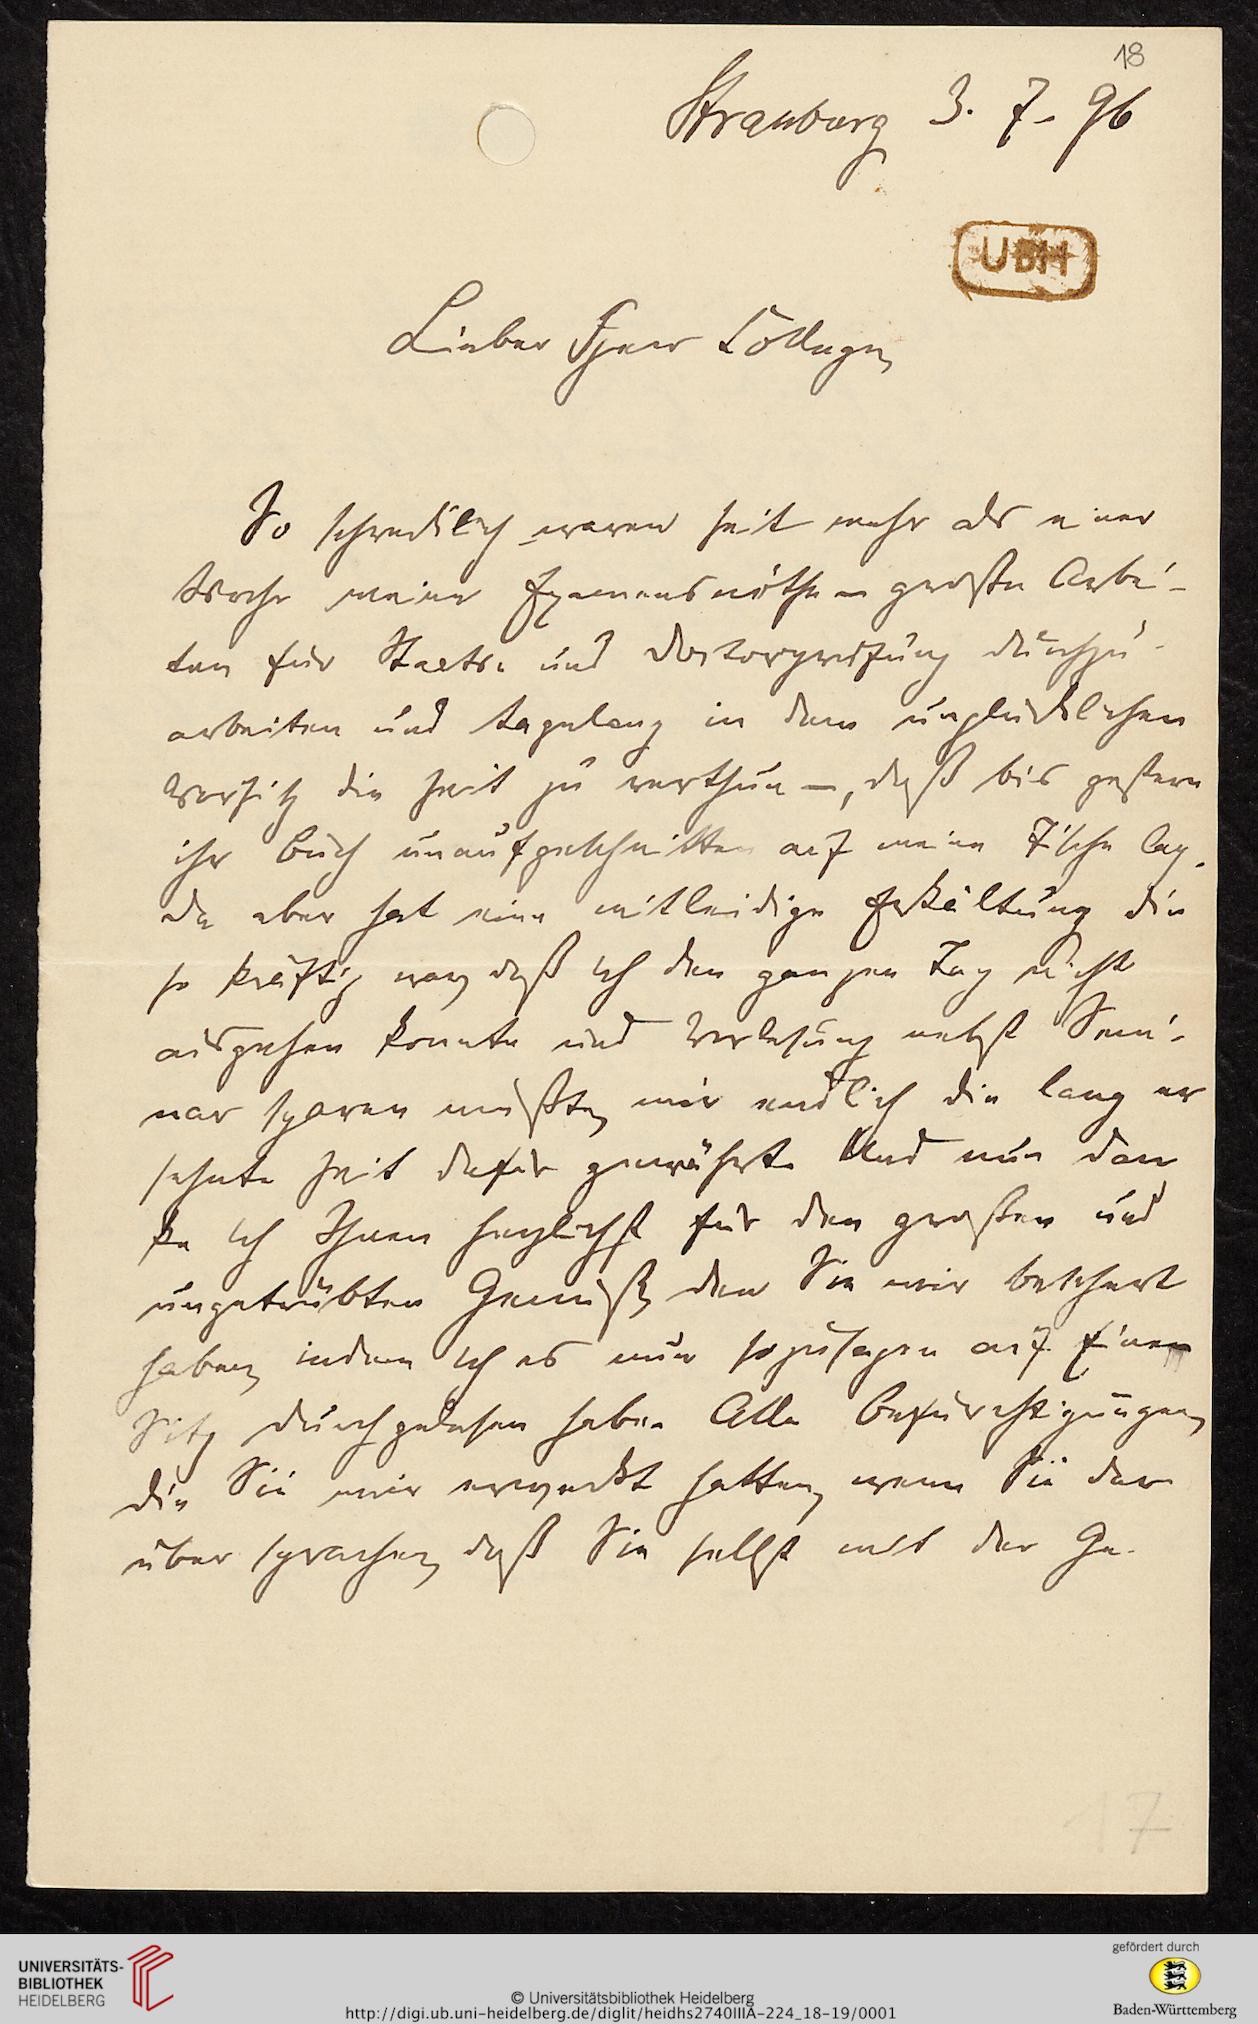 18
Strassburg 3. 7. 96
UBH
Lieber Herr College,
So schrecklich waren seit mehr als einer
Woche meine Examensnöthen große Arbei-
ten für Staats- und Doctorprüfung durchzu-
arbeiten und tagelang in dem unglücklichen
Vorsitz die Zeit zu verthun –, daß bis gestern
ihr Buch unaufgeschnitten auf meine Tische lag.
Da aber hat eine mitleidige Erkältung die
so kräftig war, daß ich den ganzen Tag nicht
ausgehen konnte und Vorlesung nebst Semi-
nar sparen mußte, mir endlich die lang er
sehnte Zeit dafür gewährt. Und nun dan
ke ich Ihnen herzlichst für den großen und
ungetrübten Genuß, den Sie mir beschert
haben, indem ich es nun sozusagen auf Einen
Sitz durchgelesen habe. Alle Befürchtigungen,
die Sie mir erweckt hatten, wenn Sie dar
über sprachen, daß Sie selbst mit der Ge-
17
UNIVERSITÄTS-
BIBLIOTHEK
HEIDELBERG
© Universitätsbibliothek Heidelberg
http://digi.ub.uni-heidelberg.de/diglit/heidhs2740IIIA-224_18-19/0001
gefördert durch
Baden-Württemberg